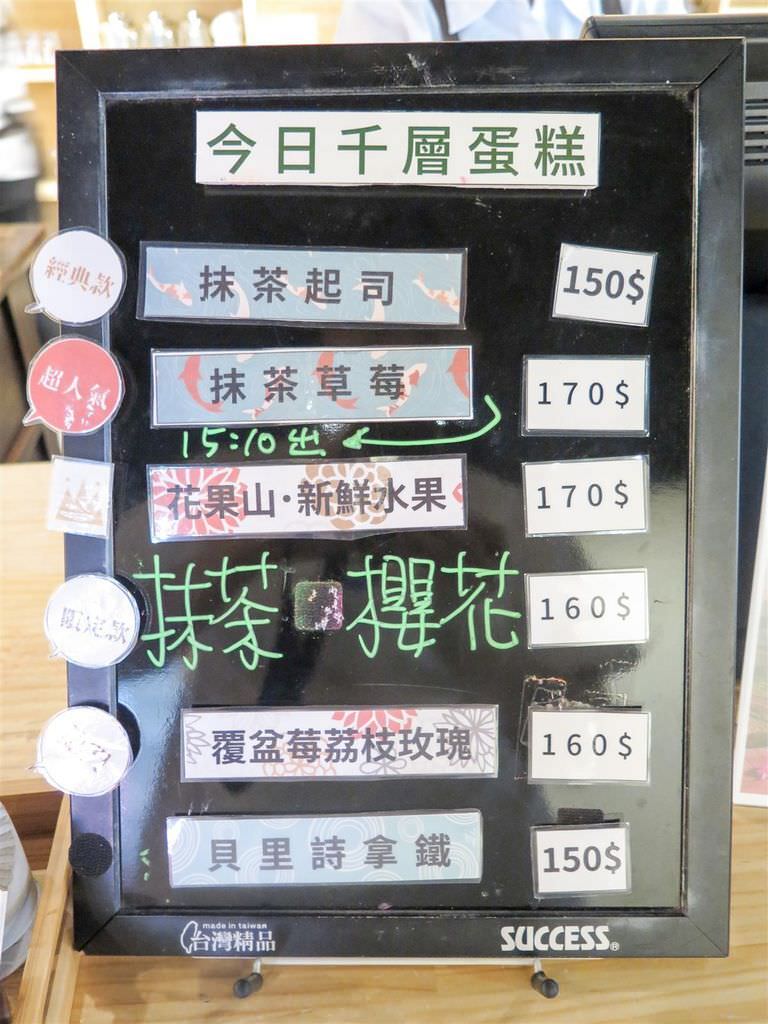 今日千層蛋糕
經典款
抹茶起司
150$
超人氣
抹茶草莓
170$
15:10出
花果山·新鮮水果
170$
抹茶
櫻花
160$
覆盆莓荔枝玫瑰
160$
貝里詩拿鐵
150$
made in taiwan
台灣精品
SUCCESS®